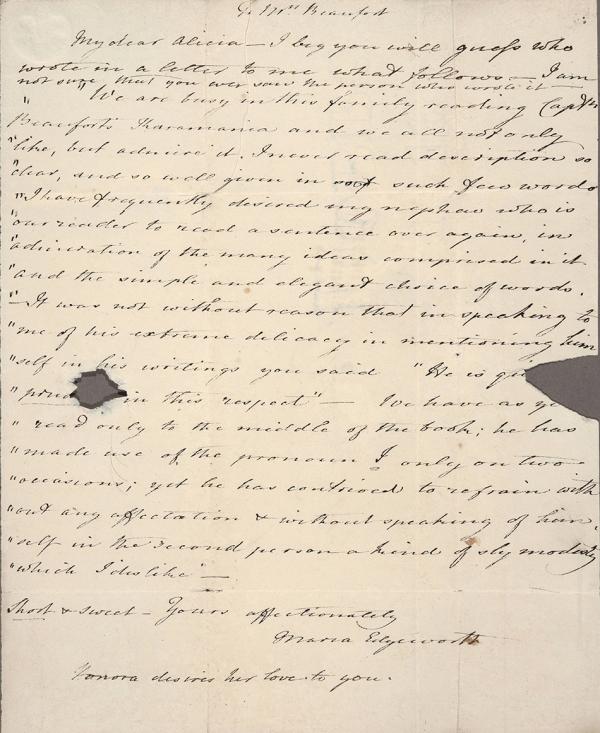 To Mrs Beaufort
My dear Alicia – I beg you will guess who
wrote in a letter to me what follows – I am
not sure that you ever saw the person who wrote it –
" "We are busy in this family reading Captn
Beaufort's Karamania and we all not only
"like, but admire it. I never read description so
"clear, and so well given in such few words
"I have frequently desired my nephew who is
"our reader to read a sentence over again, in
"admiration of the many ideas comprised in it
"and the simple and elegant choice of words.
"– It was not without reason that in speaking to
"me of his extreme delicacy in mentioning him
"self in his writings you said "He is
" in this respect" – We have as
" read only to the middle of the book; he has
"made use of the pronoun I only on two
"occasions; yet he has contrived to refrain with
"out any affectation & without speaking of him
"self in the second person a kind of sly modesty
"which I dislike" –
Short & sweet – Yours affectionately
Maria Edgeworth
Honora desires her love to you.